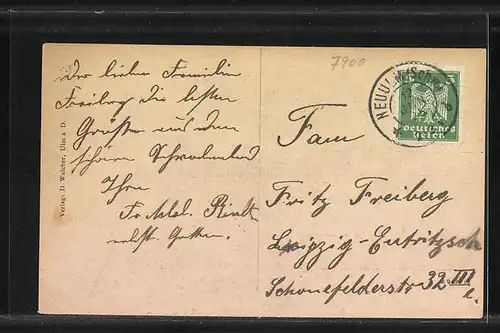 Der lieben Familie
Freiberg die besten
Grüße aus dem
schönen Schwabenland
Ihre
nebst Gatten.
Verlag: D Walcher, Ulm a D.
7900
NEUULM (Schw
5 5
Deutsches
Reich
Fam
Fritz Freiberg
Leipzig-Eutritzsch
Schönefelderstr 32 III
l.